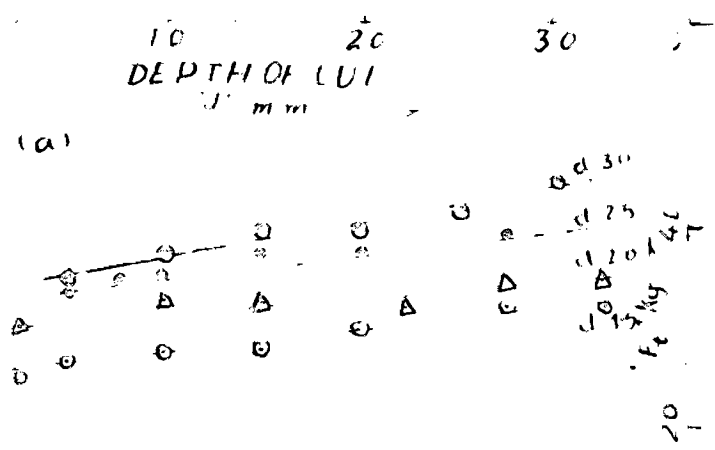 10 20 30
DEPTH OF CUT
mm
(a)
d 30
d 25
d 20
d 15
Kg
20